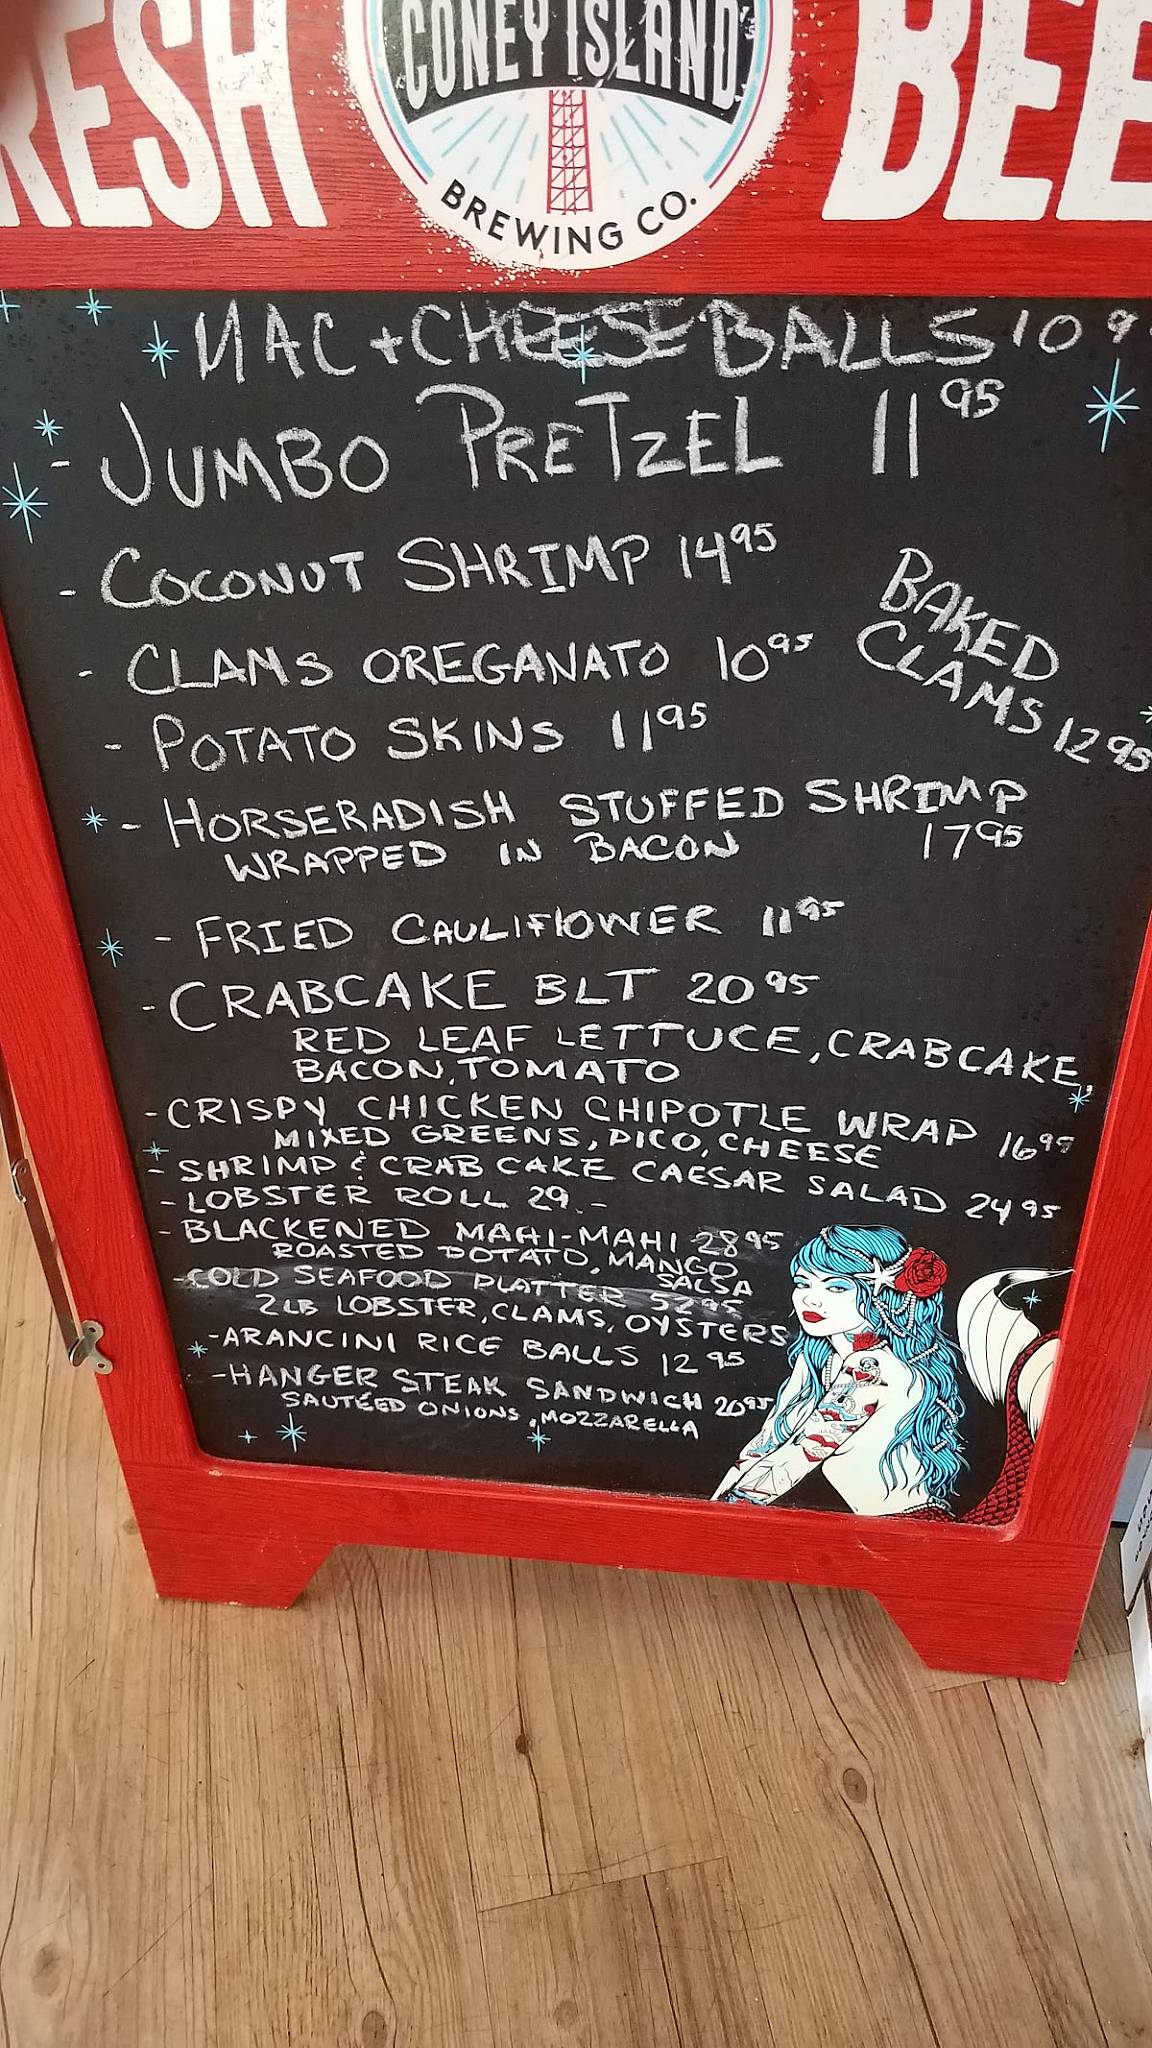 RESH
CONEY ISLAND
BREWING CO.
BEE
MAC + CHEESE BALLS 10 9
- JUMBO PRETZEL 11 95
- COCONUT SHRIMP 14 95
BAKED
CLAMS 12 95
- CLAMS OREGANATO 10 95
- POTATO SKINS 11 95
- HORSERADISH STUFFED SHRIMP
WRAPPED IN BACON 17 95
- FRIED CAULIFLOWER 11 95
- CRABCAKE BLT 20 95
RED LEAF LETTUCE, CRABCAKE,
BACON, TOMATO
- CRISPY CHICKEN CHIPOTLE WRAP 16 95
MIXED GREENS, PICO, CHEESE
- SHRIMP & CRAB CAKE CAESAR SALAD 24 95
- LOBSTER ROLL 29.-
- BLACKENED MAHI-MAHI 28 95
ROASTED POTATO, MANGO
SALSA
- COLD SEAFOOD PLATTER 52 95
2 LB LOBSTER, CLAMS, OYSTERS
- ARANCINI RICE BALLS 12 95
- HANGER STEAK SANDWICH 20 95
SAUTÉED ONIONS, MOZZARELLA